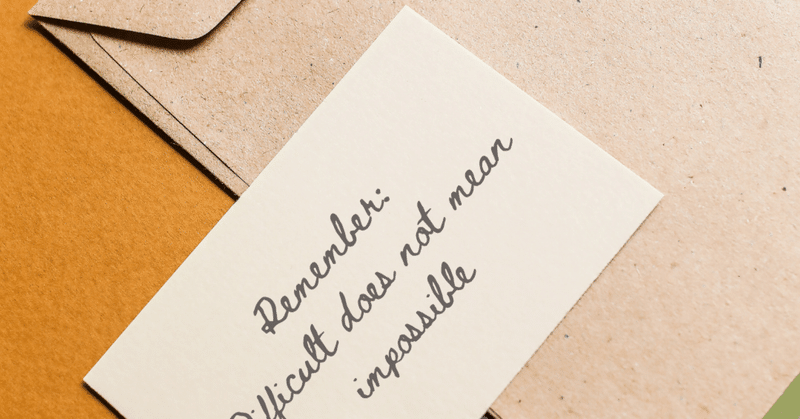 Remember:
Difficult does not mean
impossible